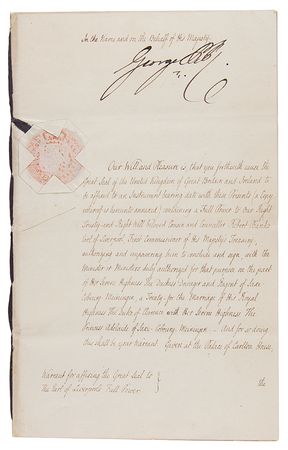 In the Name and on the Behalf of His Majesty.
George P R
Our Will and Pleasure is that you forthwith cause the
Great Seal of the United Kingdom of Great Britain and Ireland to
be affixed to an Instrument bearing date with these Presents (a Copy
whereof is hereunto annexed) containing a Full Power to Our Right
Trusty and Right Well beloved Cousin and Councillor Robert Banks
Earl of Liverpool, First Commissioner of His Majesty's Treasury,
authorizing and empowering him to conclude and sign with the
Minister or Ministers duly authorized for that purpose on the part
of Her Serene Highness The Duchess Dowager and Regent of Saxe
Cobourg Meinengen, a Treaty, for the Marriage of His Royal
Highness The Duke of Clarence with Her Serene Highness The
Princess Adelaide of Saxe-Cobourg Meinengen. And for so doing
this shall be your Warrant. Given at the Palace of Carlton House,
the
Warrant for affixing the Great Seal to
The Earl of Liverpool's Full Power.